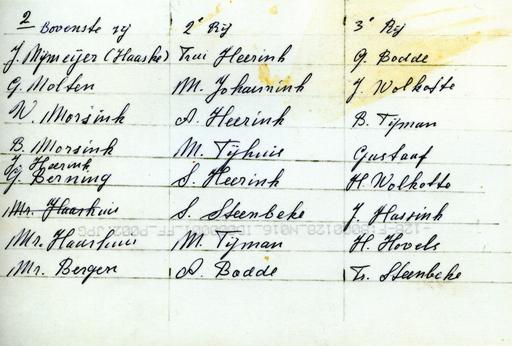 2
Bovenste rij 2e Rij 3e Rij
J. Nijmeijer (Haaske) Trui Heerink G. Bodde
G. Molten M. Johannink J. Wolkotte
W. Morsink A. Heerink B. Tijman
B. Morsink M. Tijhuis Gustaaf
J. Heerink
G. Berning S. Heerink H. Wolkotte
Mr. Haarhuis S. Steenbeke J. Hassink
Mr. Haarhuis M. Tijman H. Hovels
Mr. Bergen A. Bodde Tr. Steenbeke